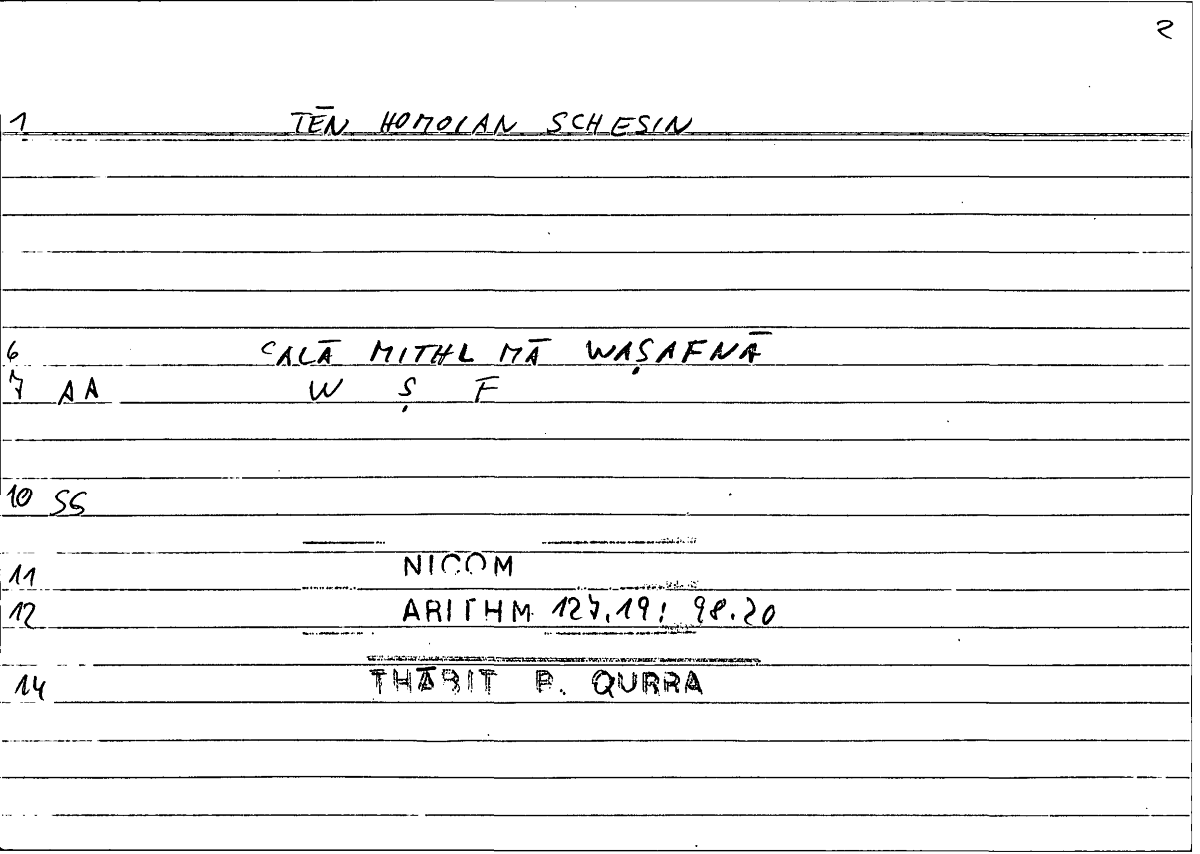 2
1 TĒN HOMOIAN SCHESIN
6 ʿALĀ MITHL MĀ WAṢAFNĀ
7 AA W Ṣ F
10 SG
11 NICOM
12 ARITHM 127.19; 98.20
14 THĀBIT B. QURRA